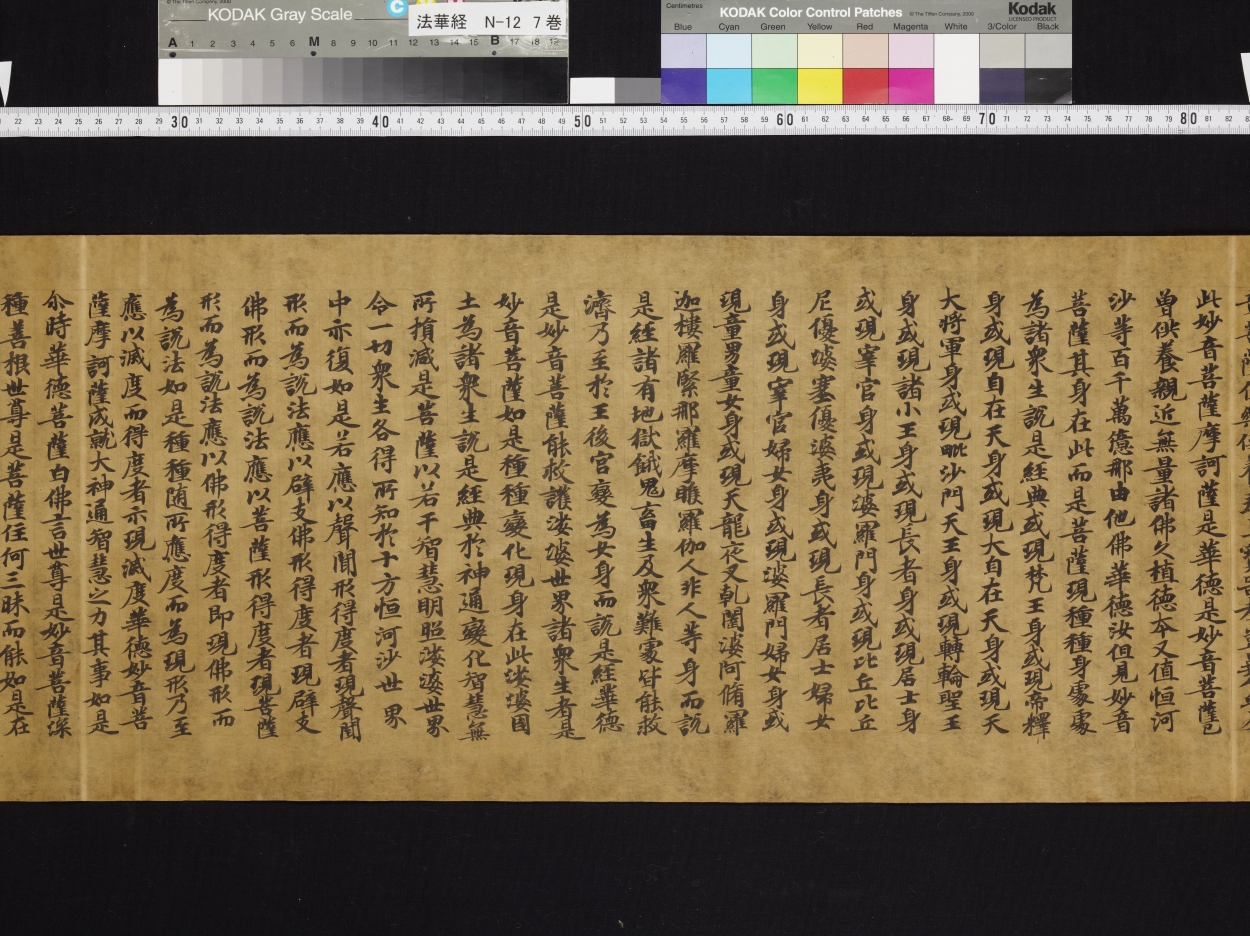 KODAK Gray Scale
法華経 N-12 7巻
A 1 2 3 4 5 6 M 8 9 10 11 12 13 14 15 B 17 18 19
Centimetres
KODAK Color Control Patches
© The Tiffen Company, 2000
Kodak
LICENSED PRODUCT
Blue Cyan Green Yellow Red Magenta White 3/Color Black
22 23 24 25 26 27 28 29 30 31 32 33 34 35 36 37 38 39 40 41 42 43 44 45 46 47 48 49 50 51 52 53 54 55 56 57 58 59 60 61 62 63 64 65 66 67 68 69 70 71 72 73 74 75 76 77 78 79 80 81 82
此妙音菩薩摩訶薩是華德是妙音菩薩已
曽供養親近無量諸佛久植德本又值恒河
沙等百千萬億那由他佛華德汝但見妙音
菩薩其身在此而是菩薩現種種身處處
為諸衆生說是經典或現梵王身或現帝釋
身或現自在天身或現大自在天身或現天
大將軍身或現毗沙門天王身或現轉輪聖王
身或現諸小王身或現長者身或現居士身
或現宰官身或現婆羅門身或現比丘比丘
尼優婆塞優婆夷身或現長者居士婦女
身或現宰官婦女身或現婆羅門婦女身或
現童男童女身或現天龍夜叉乹闥婆阿脩羅
迦樓羅緊那羅摩睺羅伽人非人等身而說
是經諸有地獄餓鬼畜生及衆難處皆能救
濟乃至於王後宮變為女身而說是經華德
是妙音菩薩能救護娑婆世界諸衆生者是
妙音菩薩如是種種變化現身在此娑婆國
土為諸衆生說是經典於神通變化智慧無
所損減是菩薩以若干智慧明照娑婆世界
令一切衆生各得所知於十方恒河沙世界
中亦復如是若應以聲聞形得度者現聲聞
形而為說法應以辟支佛形得度者現辟支
佛形而為說法應以菩薩形得度者現菩薩
形而為說法應以佛形得度者即現佛形而
為說法如是種種随所應度而為現形乃至
應以滅度而得度者示現滅度華德妙音菩
薩摩訶薩成就大神通智慧之力其事如是
尒時華德菩薩白佛言世尊是妙音菩薩深
種善根世尊是菩薩住何三昧而能如是在